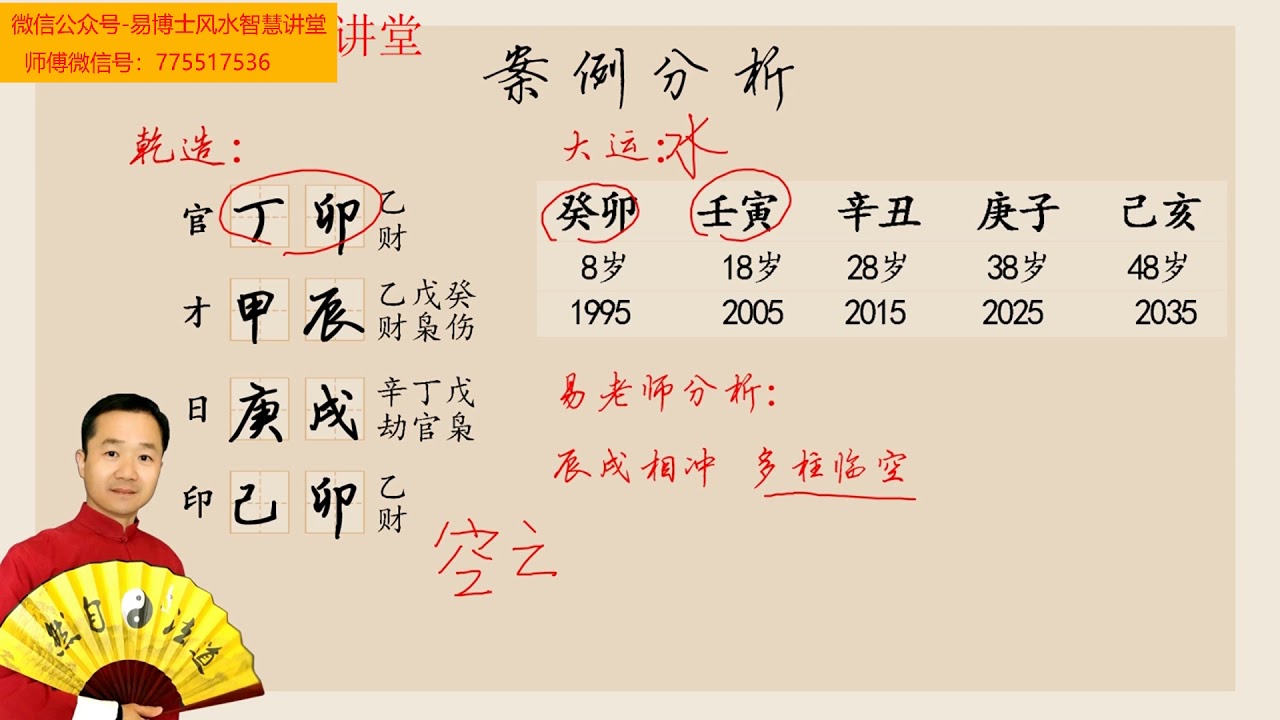 微信公众号-易博士风水智慧讲堂
师傅微信号：775517536
讲堂
案例分析
乾造：
官 丁 卯 乙
财
才 甲 辰 乙戊癸
财枭伤
日 庚 戌 辛丁戊
劫官枭
印 己 卯 乙
财
大运：水
癸卯 壬寅 辛丑 庚子 己亥
8岁 18岁 28岁 38岁 48岁
1995 2005 2015 2025 2035
易老师分析：
辰戌相冲 多柱临空
空亡
道法自然